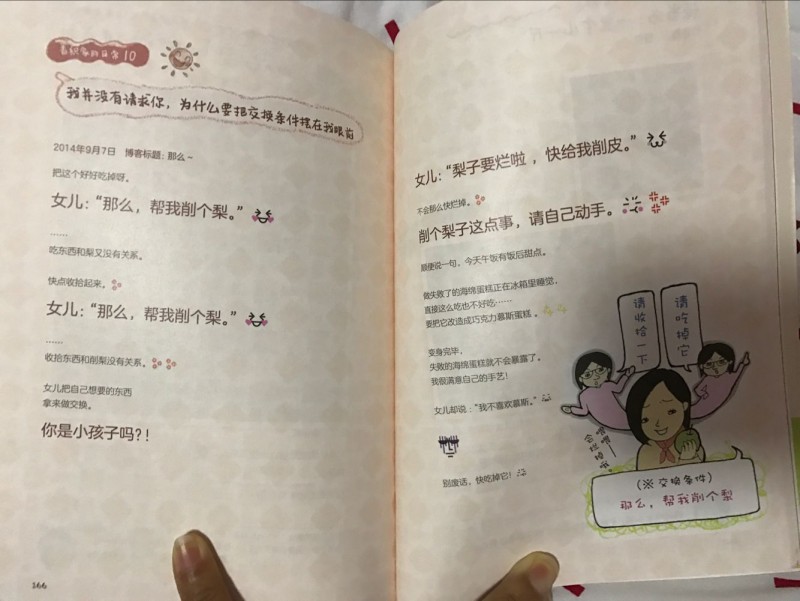 喜织家的日常 10
我并没有请求你，为什么要把交换条件摆在我眼前
2014年9月7日 博客标题：那么~
把这个好好吃掉呀。
女儿：“那么，帮我削个梨。”
……
吃东西和梨又没有关系。
快点收拾起来。
女儿：“那么，帮我削个梨。”
……
收拾东西和削梨没有关系。
女儿把自己想要的东西
拿来做交换。
你是小孩子吗？！
166
女儿：“梨子要烂啦，快给我削皮。”
不会那么快烂掉。
削个梨子这点事，请自己动手。
顺便说一句，今天午饭有饭后甜点。
做失败了的海绵蛋糕正在冰箱里睡觉，
直接这么吃也不好吃……
要把它改造成巧克力慕斯蛋糕。
变身完毕，
失败的海绵蛋糕就不会暴露了。
我很满意自己的手艺！
女儿却说：“我不喜欢慕斯。”
别废话，快吃掉它！
请收拾一下
请吃掉它
会烂掉哦
（※交换条件）
那么，帮我削个梨